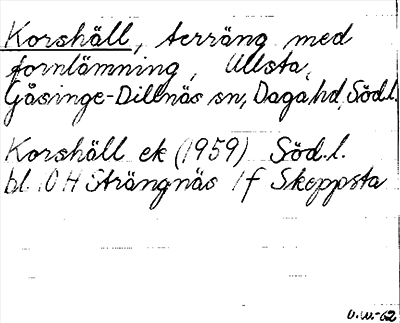 Korshäll, terräng med
fornlämning, Ullsta,
Gåsinge-Dillnäs sn, Daga hd, Södl.
Korshäll ek (1959) Söd.l.
bl. 10 H Strängnäs 1f Skeppsta
U.W.-62